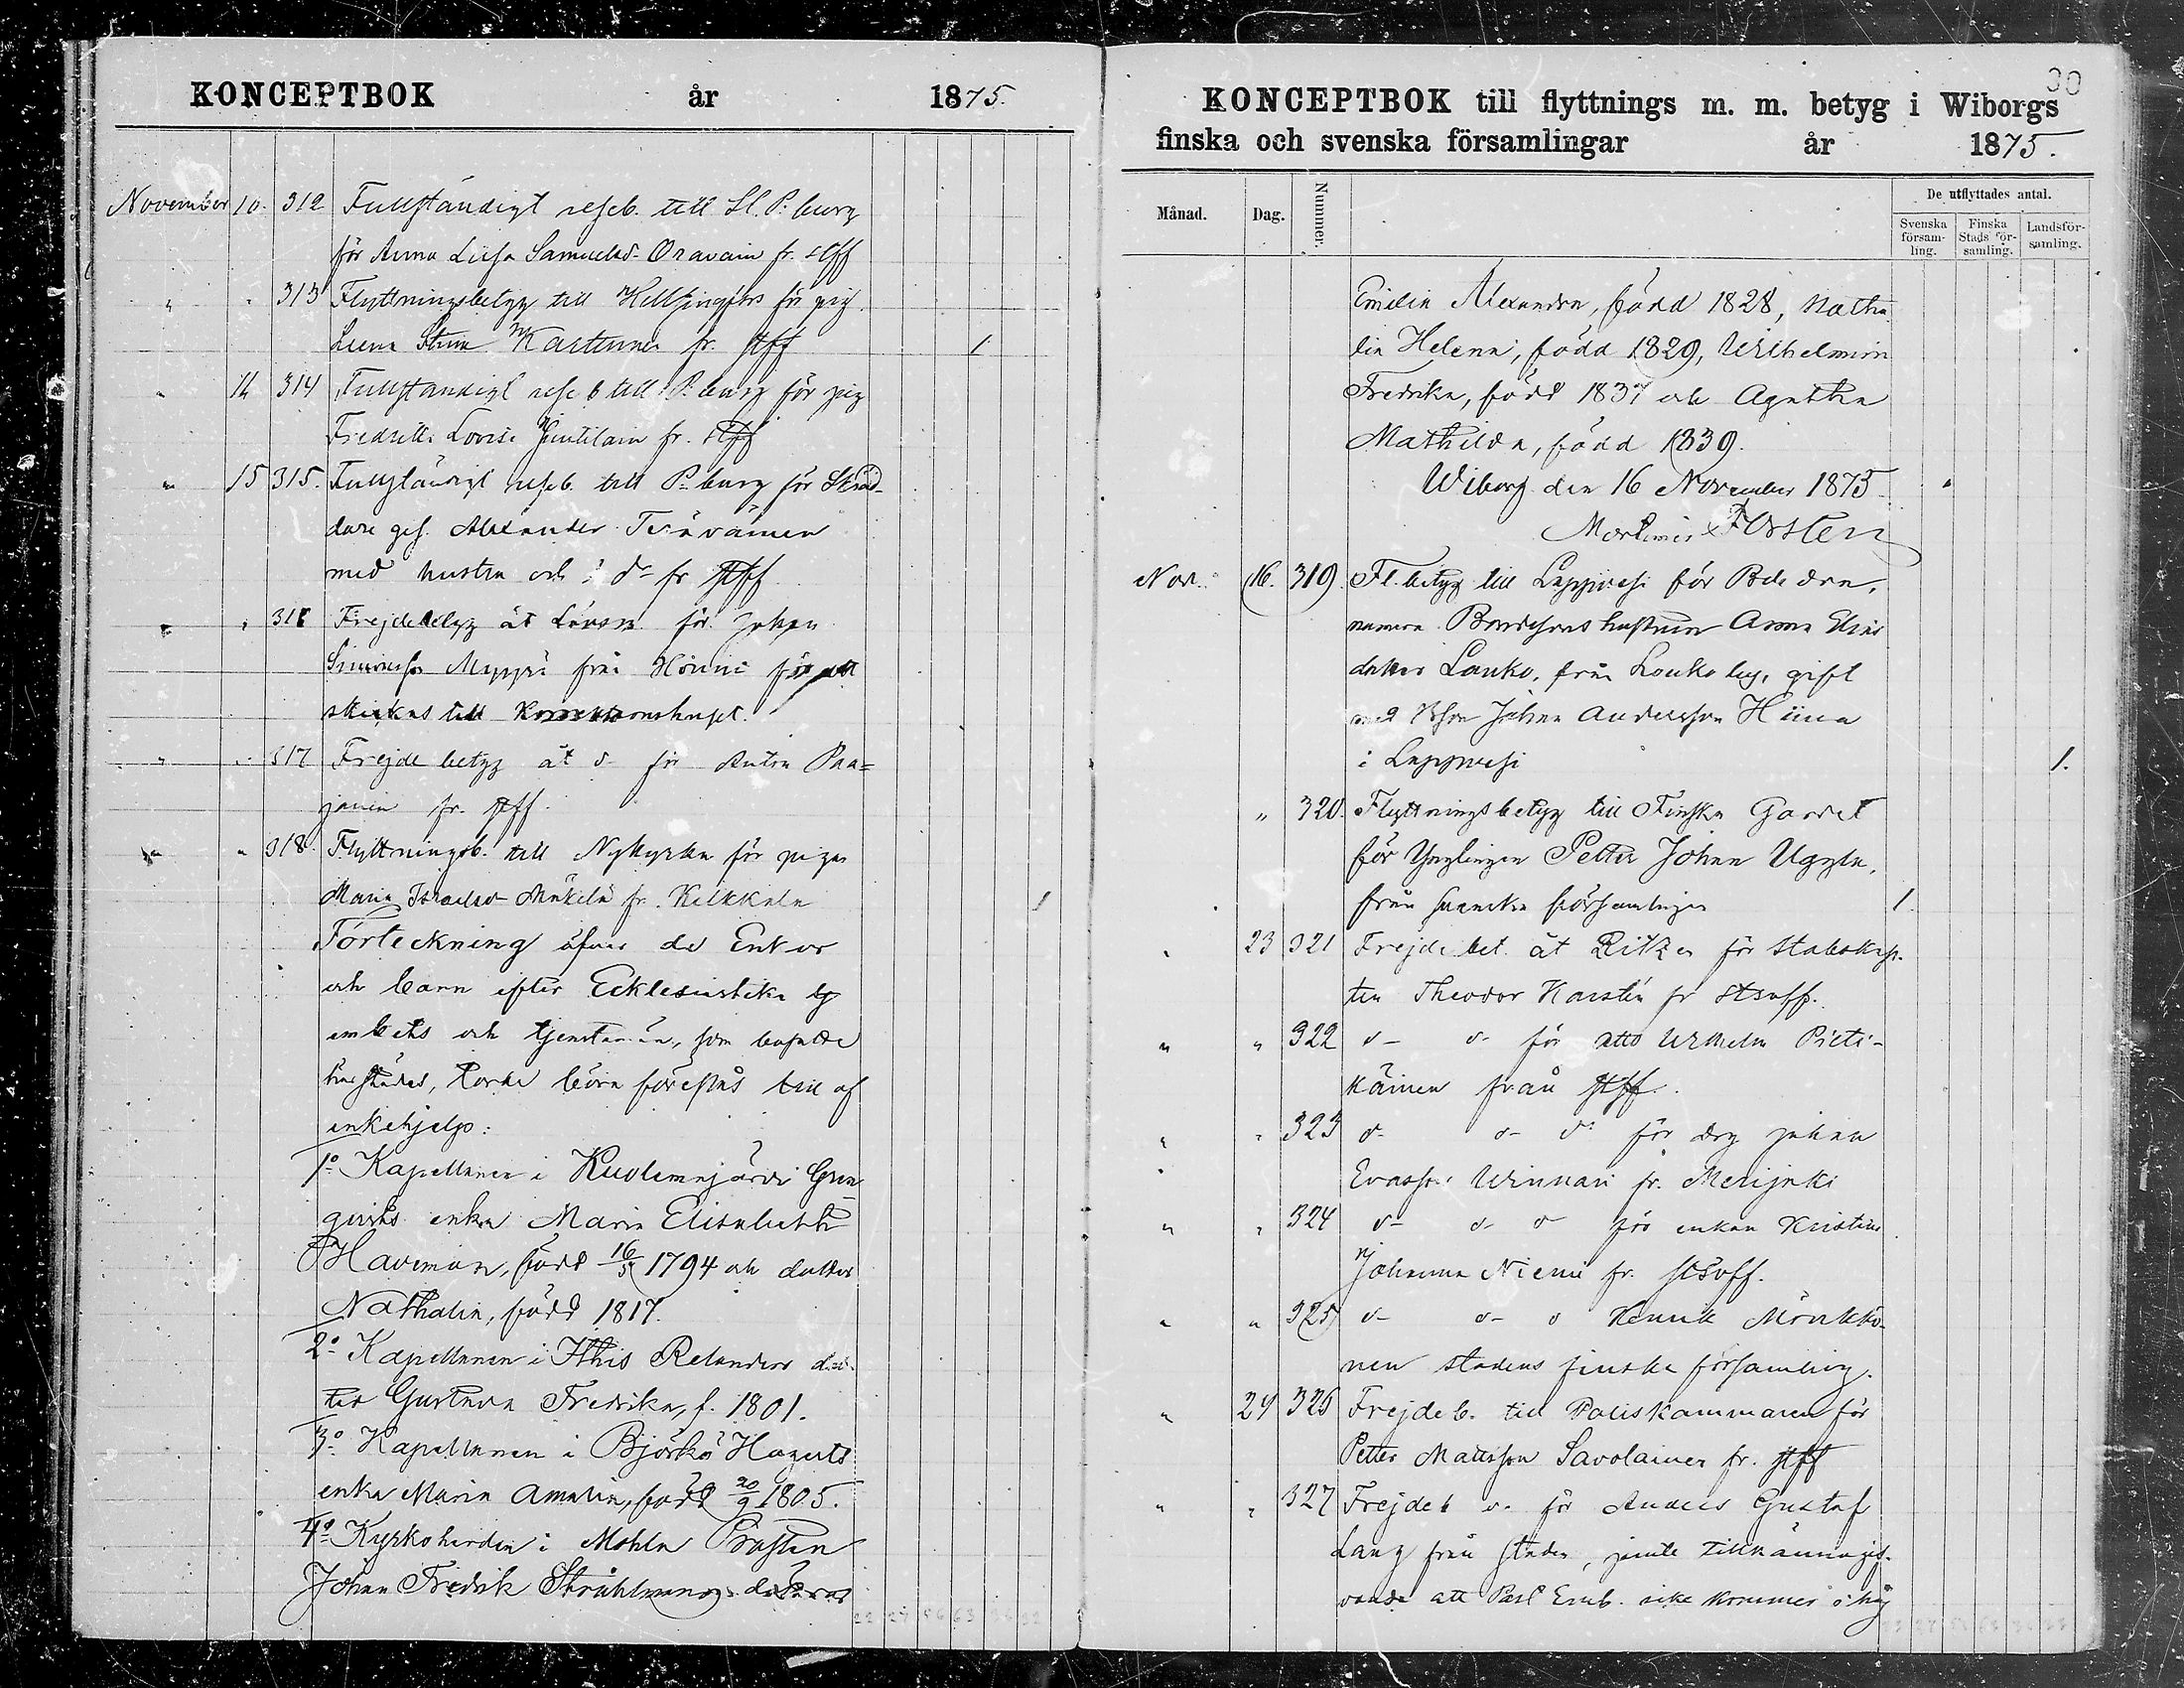 KONCEPTBOK år 1875.
November 10. 312 Fullständigt reseb. till St. P:burg
för Anna Liisa Samuelsd. Oravain fr. stff
" " 313 Flyttningsbetyg till Helsingfors för pig.
Leena Stina Karttunen fr. stff 1
" 12 314 Fullständigt reseb till P:burg för pig
Fredrika Lovisa Hintilain fr. stff
" 15 315. Fullständigt reseb. till P:burg för Skräd-
dare ges. Alexander Terävainen
med hustru och d:r fr stff
" " 316 Frejdebetyg åt Länsm. för Johan
Simonsson Myyrä från för att
skickas till Korrektionshuset.
" " 317 Frejdebetyg åt d:o för Anton Paa-
janen fr. stff.
" " 318. Flyttningsb. till Nykyrka för pigan
Maria Israelsd Mäkelä fr. Kilkkala 1
Förteckning öfver de Enkor
och barn efter Ecklesiastika
embets och tjenstemän, som bosatte
härstädes, torde böra förestås till af
enkehjelp:
1:o Kapellanen i Kuolemajärvi
enka Maria Elisabeth
Haveman, född 16/5 1794 och dotter
Nathalia, född 1817.
2:o Kapellanen i Ithis Relanders dot-
ter Gustava Fredrika, f. 1801.
3:o Kapellanen i Björkö Hagerts
enka Maria Amalia, född 20/9 1805.
4:o Kyrkoherden i Mohla Prosten
Johan Fredrik Stråhlmans döttrar
30
KONCEPTBOK till flyttnings m. m. betyg i Wiborgs
finska och svenska församlingar år 1875.
Månad. Dag. Nummer. De utflyttades antal.
Svenska församling. Finska Stads församling. Landsförsamling.
Emilia Alexandra, född 1828, Natha-
lia Helena, född 1829, Wilhelmina
Fredrika, född 1837 och Agatha
Mathilda, född 1839.
Wiborg den 16 November 1875.
Forstén
Nov. 16. 319. Fl. betyg till Lappvesi för Bde dra,
numera Bondesons hustrun Anna Elias
dotter Lauko, från Louko by, gift
med Bson Johan Andersson Hiina
i Lappvesi 1.
" 320. Flyttningsbetyg till Finska Gardet
för Ynglingen Petter Johan Uggla,
från svenska församlingen 1.
" 23 321 Frejdebet. åt Ritz för Stabskap-
ten Theodor Karstén fr stsvff.
" " 322 d:o d:o för Otto Wilhelm Pieti-
käinen från stff.
" " 323 d:o d:o d:o för drg Johan
Evasson Winnari fr. Merijoki
" " 324 d:o d:o d:o för enkan Kristina
Johanna Niemi fr. stsvff.
" " 325 d:o d:o d:o Henrik Mörkkö-
nen stadens finska församling.
" 24 326 Frejdeb. till Poliskammaren för
Petter Mattsson Savolainen fr. stff
" " 327 Frejdeb d:o för Anders Gustaf
Lang från staden, jemte tillkännagif-
vande att Past Emb. icke kommer ihåg